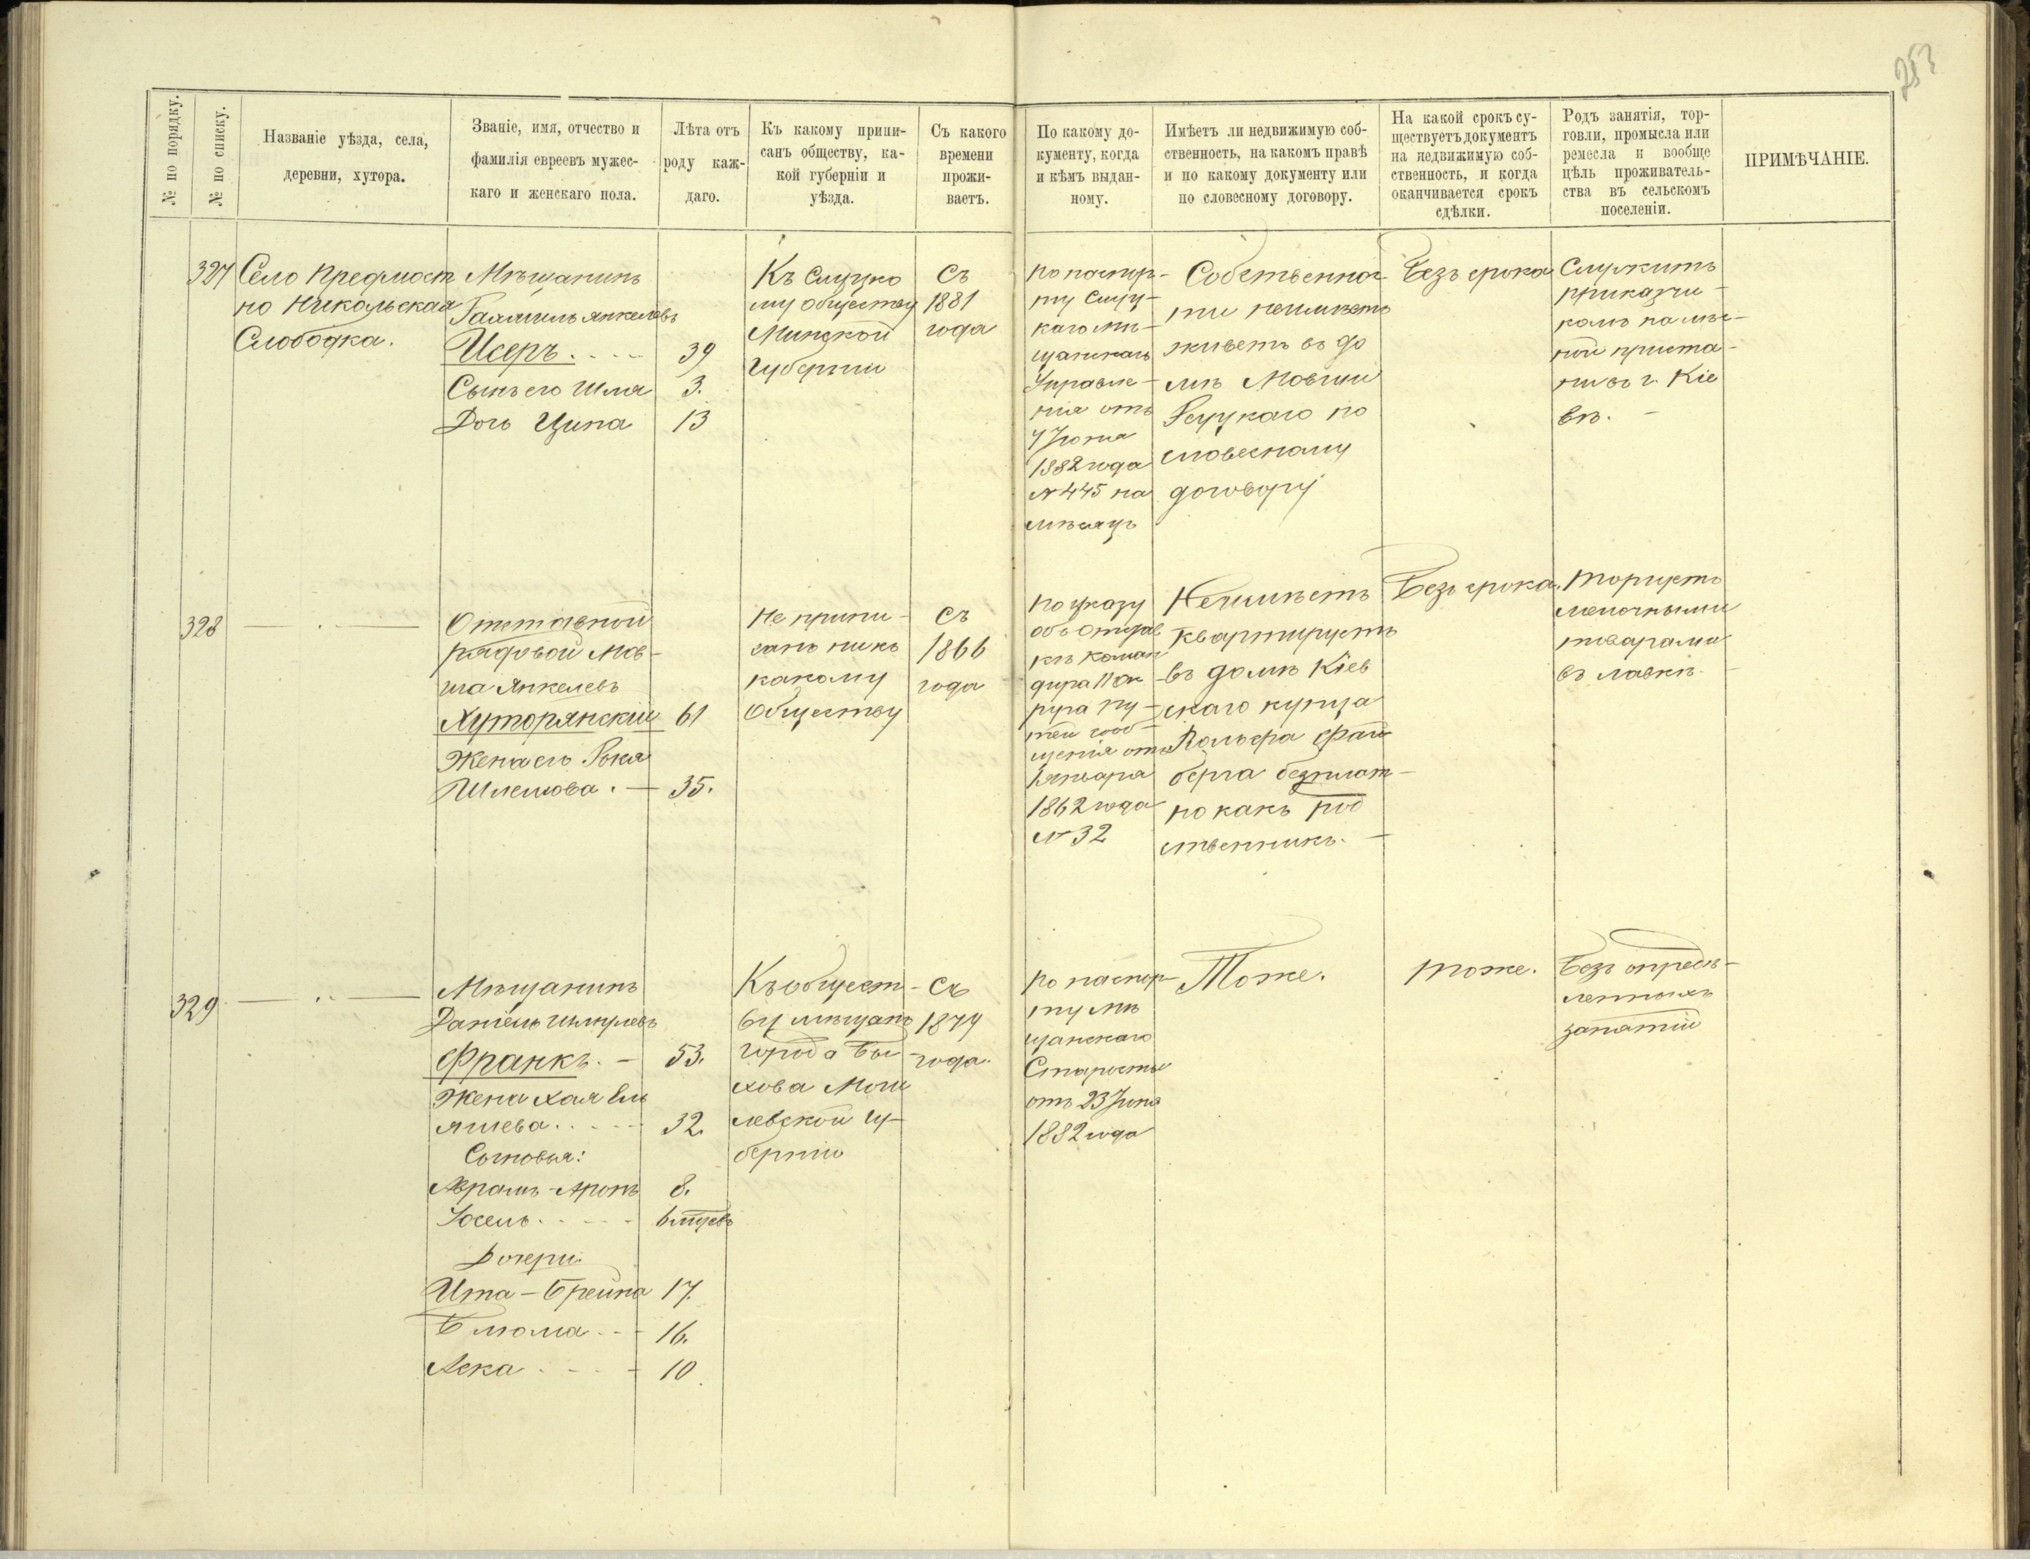 253
№ по порядку.
№ по списку.
Названіе уѣзда, села,
деревни, хутора.
Званіе, имя, отчество и
фамилія евреевъ мужес-
каго и женскаго пола.
Лѣта отъ
роду каж-
даго.
Къ какому припи-
санъ обществу, ка-
кой губерніи и
уѣзда.
Съ какого
времени
прожи-
ваетъ.
По какому до-
кументу, когда
и кѣмъ выдан-
ному.
Имѣетъ ли недвижимую соб-
ственность, на какомъ правѣ
и по какому документу или
по словесному договору.
На какой срокъ су-
ществуетъ документъ
на недвижимую соб-
ственность, и когда
оканчивается срокъ
сдѣлки.
Родъ занятія, тор-
говли, промысла или
ремесла и вообще
цѣль проживатель-
ства въ сельскомъ
поселеніи.
ПРИМѢЧАНІЕ.
327
Село Предмост
но Никольская
Слободка.
Мѣщанинъ
Янкелевъ
Исеръ. 39
Сынъ его Шля 3.
Дочь Ципа 13
Къ Слуцко
му обществу
Минской
губерніи
Съ
1881
года
По паспор-
ту Слуц-
каго мѣ-
щанскаго
Управле-
нія отъ
7 Іюня
1882 года
№ 445 на
мѣсяцъ
Собственнос-
ти неимѣетъ
живетъ въ до
мѣ Мовши
по
словесному
договору
Безъ срока
Служитъ
приказчи-
комъ на лѣс-
ной приста-
ни въ г. Кіе
вѣ.
328
Отставной
рядовой Мов-
ша Янкелевъ
Хуторянскій 61
Жена его Рыкля
Шлемова. 35.
Не припи-
санъ ни къ
какому
обществу
Съ
1866
года
По указу
объ отстав
кѣ коман
дира 11 Ок
руга Пу-
тей сооб-
щенія отъ
Января
1862 года
№ 32
Неимѣетъ
квартируетъ
въ домѣ Кіев
скаго купца
Вольфа Фай
берга безплат-
но какъ род
ственникъ.
Безъ срока.
Торгуетъ
мелочными
товарами
въ лавкѣ.
329
Мѣщанинъ
Даніель Шмулевъ
Франкъ. 53.
Жена Хая Ель
яшева. 32.
Сыновья:
Абрамъ-Аронъ 8.
Іосель. 6 мѣсяцевъ
Дочери:
Ита-Брейна 17.
Блюма 16.
Аска 10.
Къ общест-
ву мѣщанъ
города Бы-
хова Моги
левской гу-
берніи
Съ
1874
года.
По паспор-
ту мѣ
щанскаго
Старосты
отъ 23 Іюня
1882 года
Тоже.
Тоже.
Безъ опредѣ-
ленныхъ
занятій